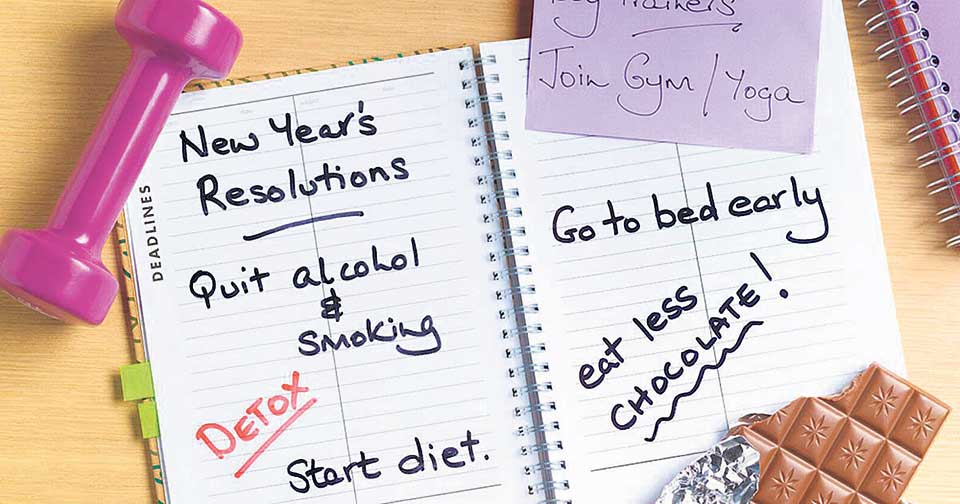 New Year's
Resolutions
DEADLINES
Quit alcohol
&
smoking
DETOX
Start diet.
Trainers
Join Gym / Yoga
Go to bed early
eat less
CHOCOLATE!